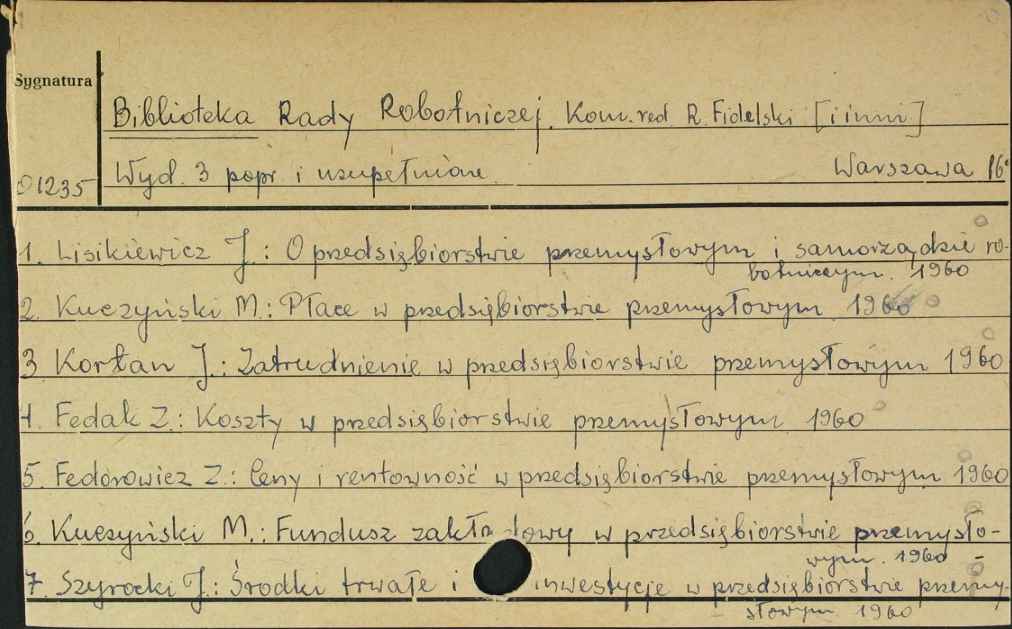 Sygnatura
Biblioteka Rady Robotniczej. Kom. red R. Fidelski [i inni]
01235 Wyd. 3 popr. i uzupełnione. Warszawa
1. Lisikiewicz J.: O przedsiębiorstwie przemysłowym i samorządzie ro-
botniczym. 1960
2. Kuczyński M.: Płace w przedsiębiorstwie przemysłowym. 1960
3. Kortan J.: Zatrudnienie w przedsiębiorstwie przemysłowym 1960
4. Fedak Z.: Koszty w przedsiębiorstwie przemysłowym 1960
5. Fedorowicz Z.: Ceny i rentowność w przedsiębiorstwie przemysłowym 1960
6. Kuczyński M.: Fundusz zakładowy w przedsiębiorstwie przemysło-
wym. 1960
7. Szyrocki J.: Środki trwałe i inwestycje w przedsiębiorstwie przemy-
słowym 1960